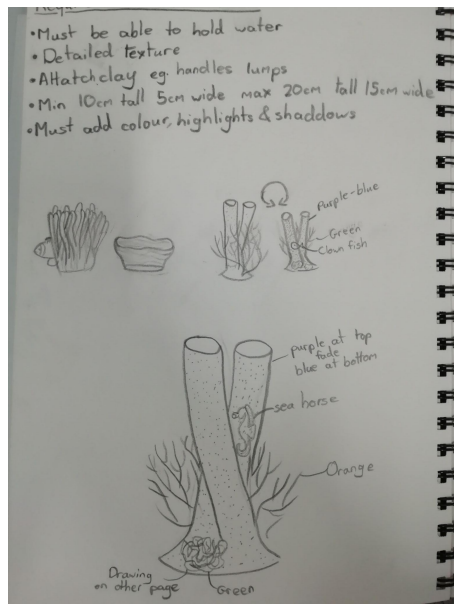 •Must be able to hold water
•Detailed texture
•AHatch clay eg. handles lumps
•Min 10cm tall 5cm wide max 20cm tall 15cm wide
•Must add colour, highlights & shaddows
Purple-blue
Green
Clown fish
purple at top
fade
blue at bottom
sea horse
Orange
Drawing
on other page
Green